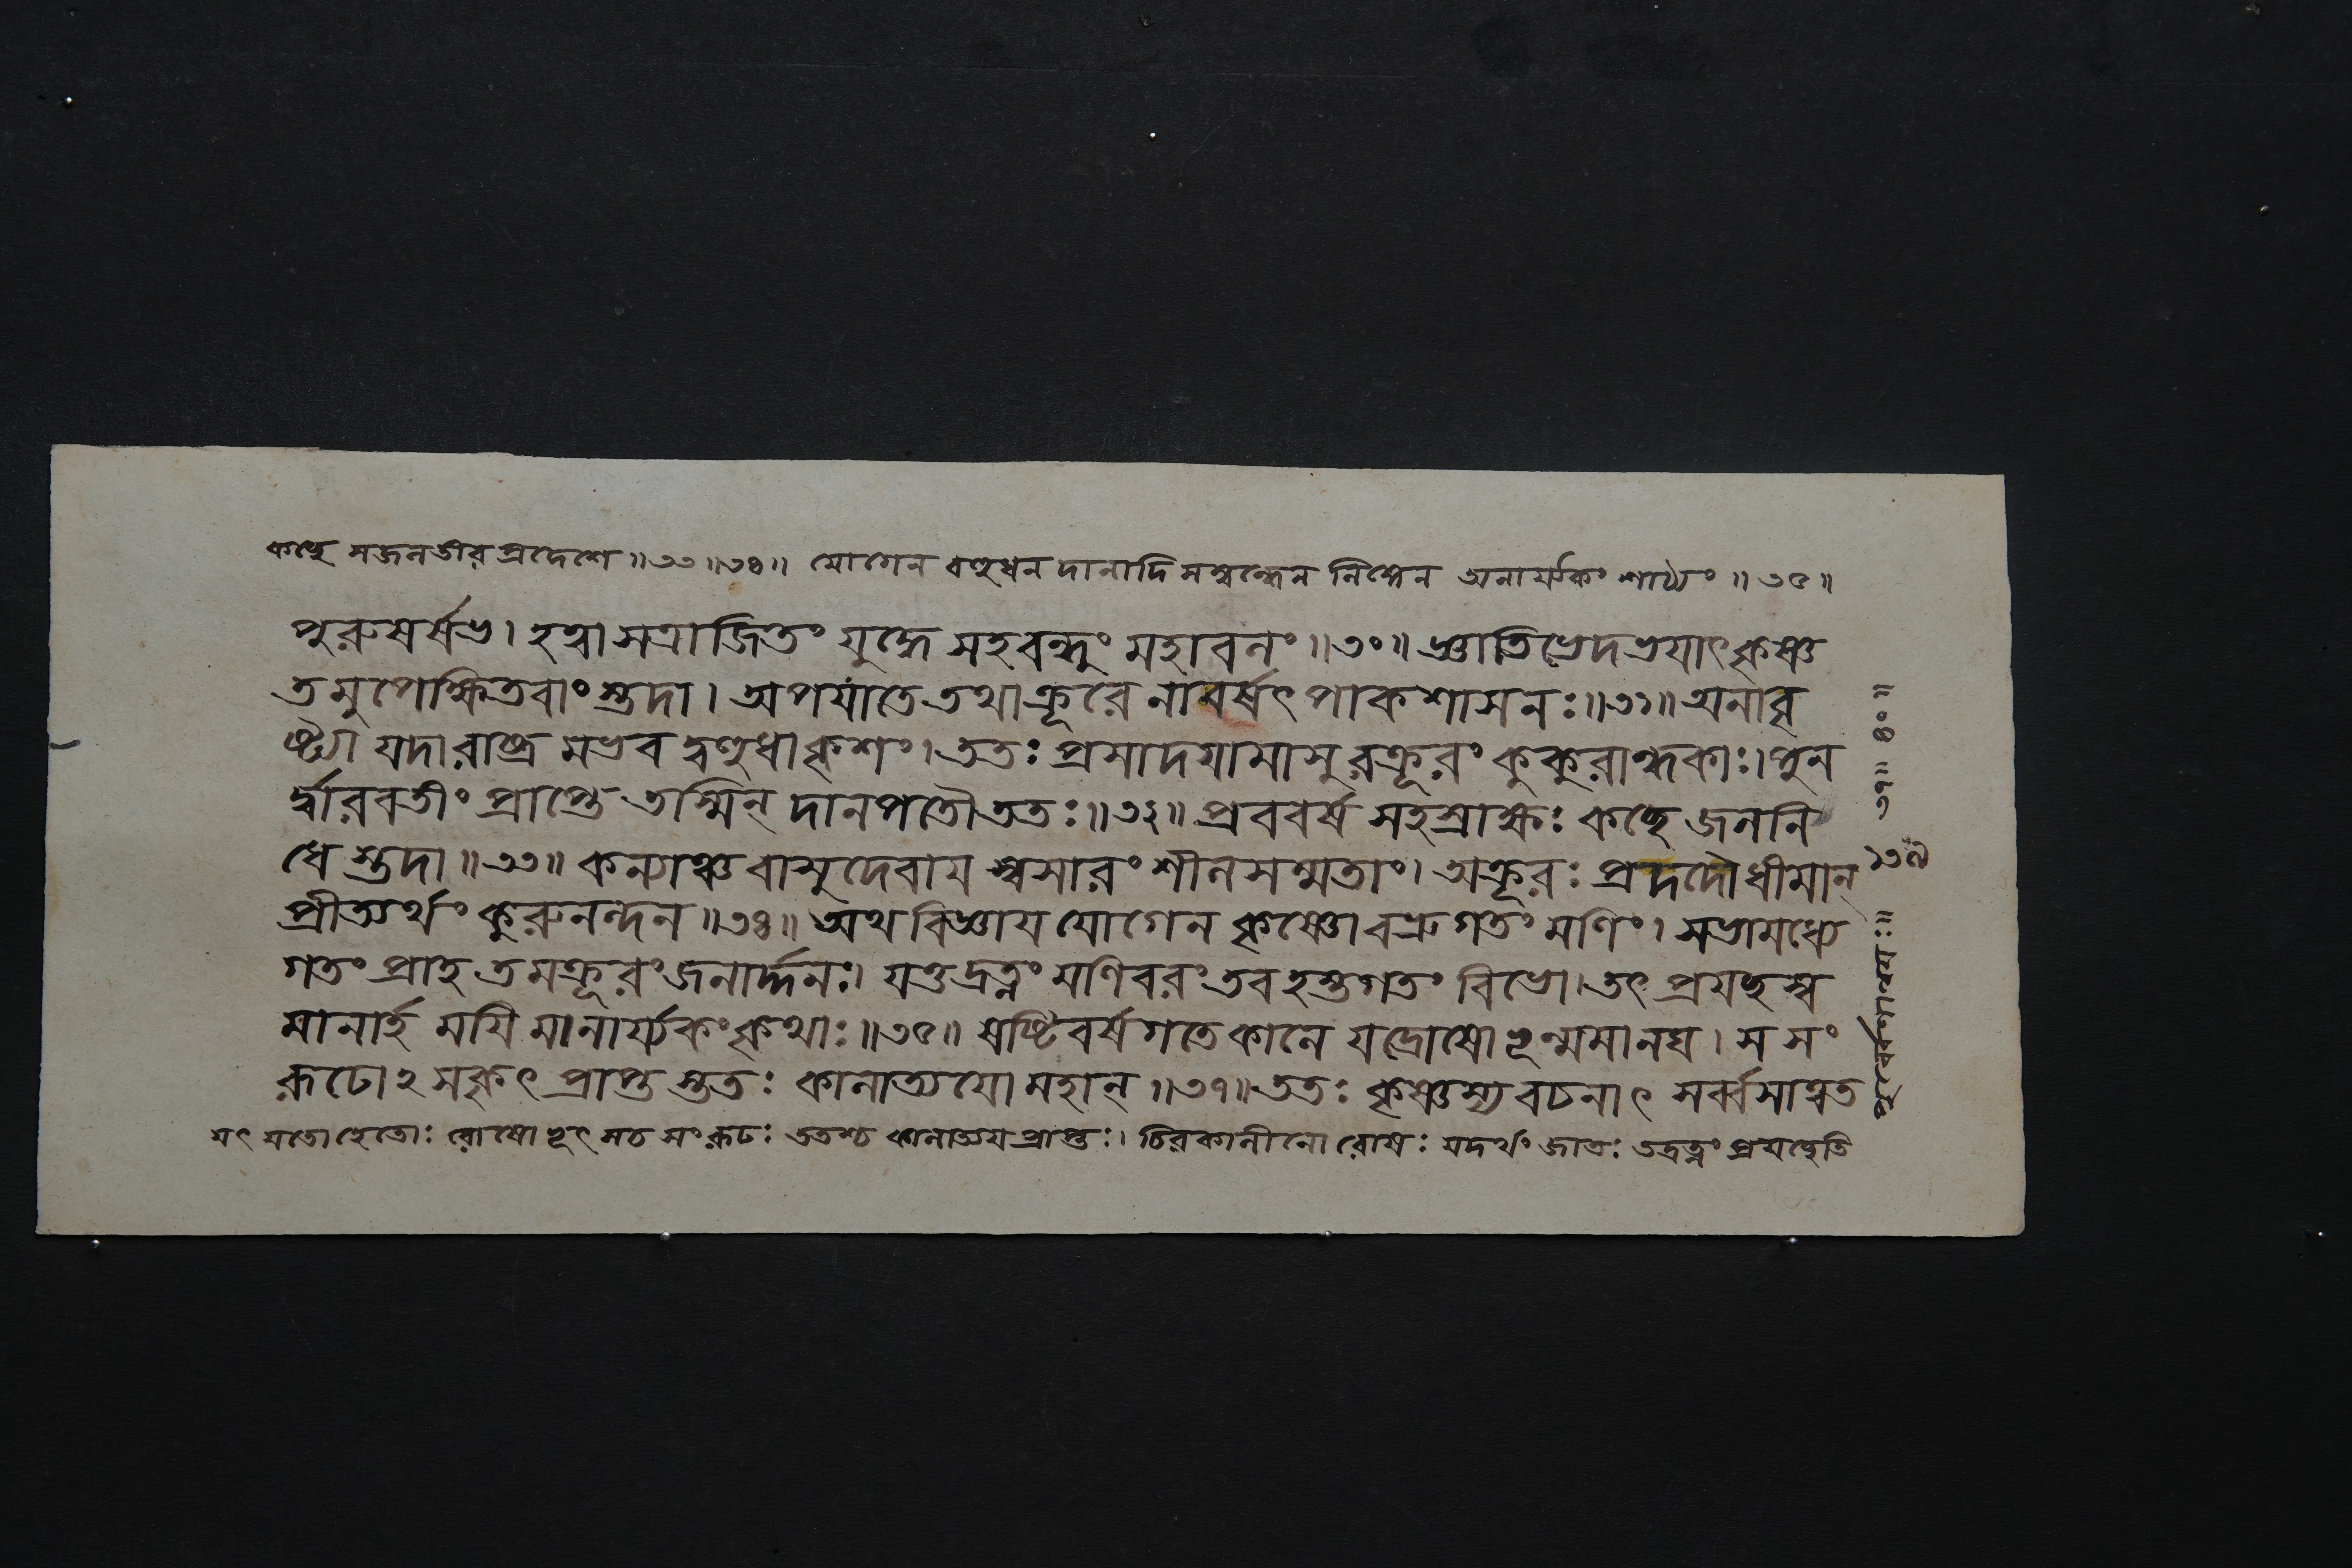 কচ্ছে সজলতীর প্রদেশে ॥৩৩॥৩৪॥ যোগেন বহুধন দানাদি সম্বন্ধেন লিঙ্গেন অনার্য্যকং শাঠ্যং ॥৩৫॥
পুরুষর্ষভ। হত্বা সত্রাজিতং যুদ্ধে সহবন্ধুং মহাবলং॥৩০॥ জ্ঞাতিভেদভয়াৎ কৃষ্ণ
তমুপেক্ষিতবাং স্তদা। অপযাতে তথাক্রূরে নাবর্ষৎ পাকশাসনঃ॥৩১॥ অনাবৃ
ষ্ট্যা যদা রাষ্ট্র মভব দ্বহুধা কৃশং। ততঃ প্রসাদয়ামাসু রক্রূরং কুকুরান্ধকাঃ। পুন
র্দ্বারবতীং প্রাপ্তে তস্মিন্ দানপতৌ ততঃ॥৩২॥ প্রববর্ষ সহস্রাক্ষঃ কচ্ছে জলনি
ধে স্তদা॥৩৩॥ কন্যাঞ্চ বাসুদেবায় স্বসারং শীলসম্মতাং। অক্রূরঃ প্রদদৌ ধীমান্
প্রীত্যর্থং কুরুনন্দন॥৩৪॥ অথ বিজ্ঞায় যোগেন কৃষ্ণো বভ্রুগতং মণিং। সভামধ্যে
গতং প্রাহ তমক্রূরং জনার্দ্দনঃ। যত্তদ্রত্নং মণিবরং তব হস্তগতং বিভো। তৎ প্রযচ্ছস্ব
মানার্হ ময়ি মানার্য্যকং কৃথাঃ॥৩৫॥ ষষ্টিবর্ষগতে কালে যদ্রোষো ভূন্মমানঘ। স সং
রূঢো ২ সকৃৎ প্রাপ্ত স্ততঃ কালাত্যয়ো মহান্॥৩৭॥ ততঃ কৃষ্ণস্য বচনাৎ সর্ব্বসাত্বত
যৎ যতো হেতোঃ রোষো ভূৎ সচ সংরূঢঃ ততশ্চ কালাত্যয় প্রাপ্তঃ। চিরকালীনো রোষঃ যদর্থং জাতঃ তদ্রত্নং প্রযচ্ছেতি
॥ ৩৭॥ ৪০ ॥
১৩৭